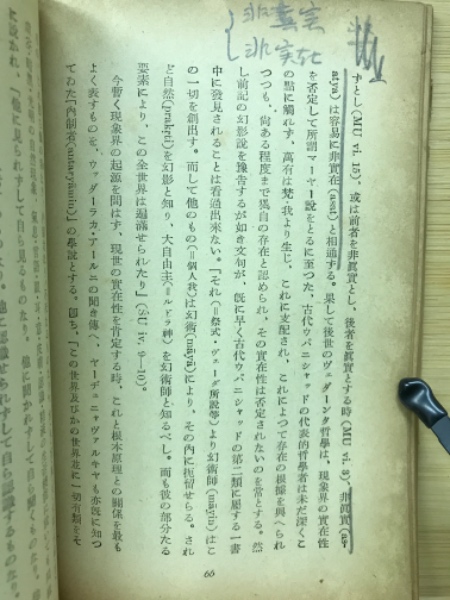 非真実
非実在
ずとし(MU vi. 15)、或は前者を非眞實とし、後者を眞實とする時(MU vi. 3)、非眞實(as-
atya)は容易に非實在(asat)と相通ずる。果して後世のヴェーダーンタ哲學は、現象界の實在性
を否定して所謂マーヤー説をとるに至つた、古代ウパニシャッドの代表的哲學者は未だ深くこ
の點に觸れず、萬有は梵・我より生じ、これに支配され、これによつて存在の根據を與へられ
つつも、尙ある程度まで獨自の存在と認められ、その實在性は否定されないのを常とする。然
し前記の幻影説を豫告するが如き文句が、既に早く古代ウパニシャッドの第二類に屬する一書
中に發見されることは看過出來ない。「それ(=祭式・ヴェーダ所説等)より幻術師(māyin)はこ
の一切を創出す。而して他のもの(=個人我)は幻術(māyā)により、その内に拘留せらる。され
ど自然(prakṛti)を幻影と知り、大自由夫(=ルドラ神)を幻術師と知るべし。而も彼の部分たる
要素により、この全世界は遍滿せられたり」(ŚU iv. 9—10)。
今暫く現象界の起源を問はず、現世の實在性を肯定する時、これと根本原理との關係を最も
よく表すものを、ウッダーラカ・アールニの聞き傳へ、ヤーヂュニャヴァルキヤも亦既に知つ
てゐた「内制者(antaryāmin)」の學説とする。卽ち、「この世界及びかの世界並に一切有類をそ
66